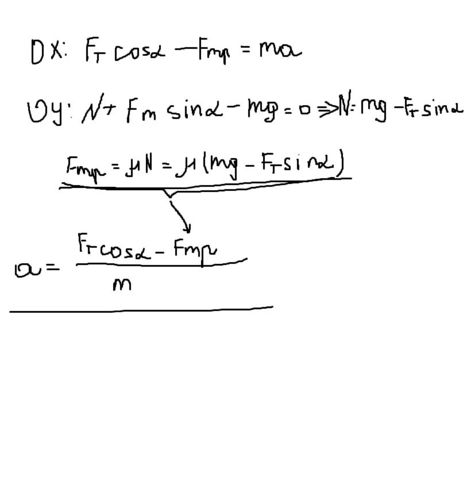 OX: Fт cosα − Fтр = ma
Oy: N + Fт sinα − mg = 0 ⇒ N = mg − Fт sinα
Fтр = μN = μ(mg − Fт sinα)
a = (Fт cosα − Fтр) / m